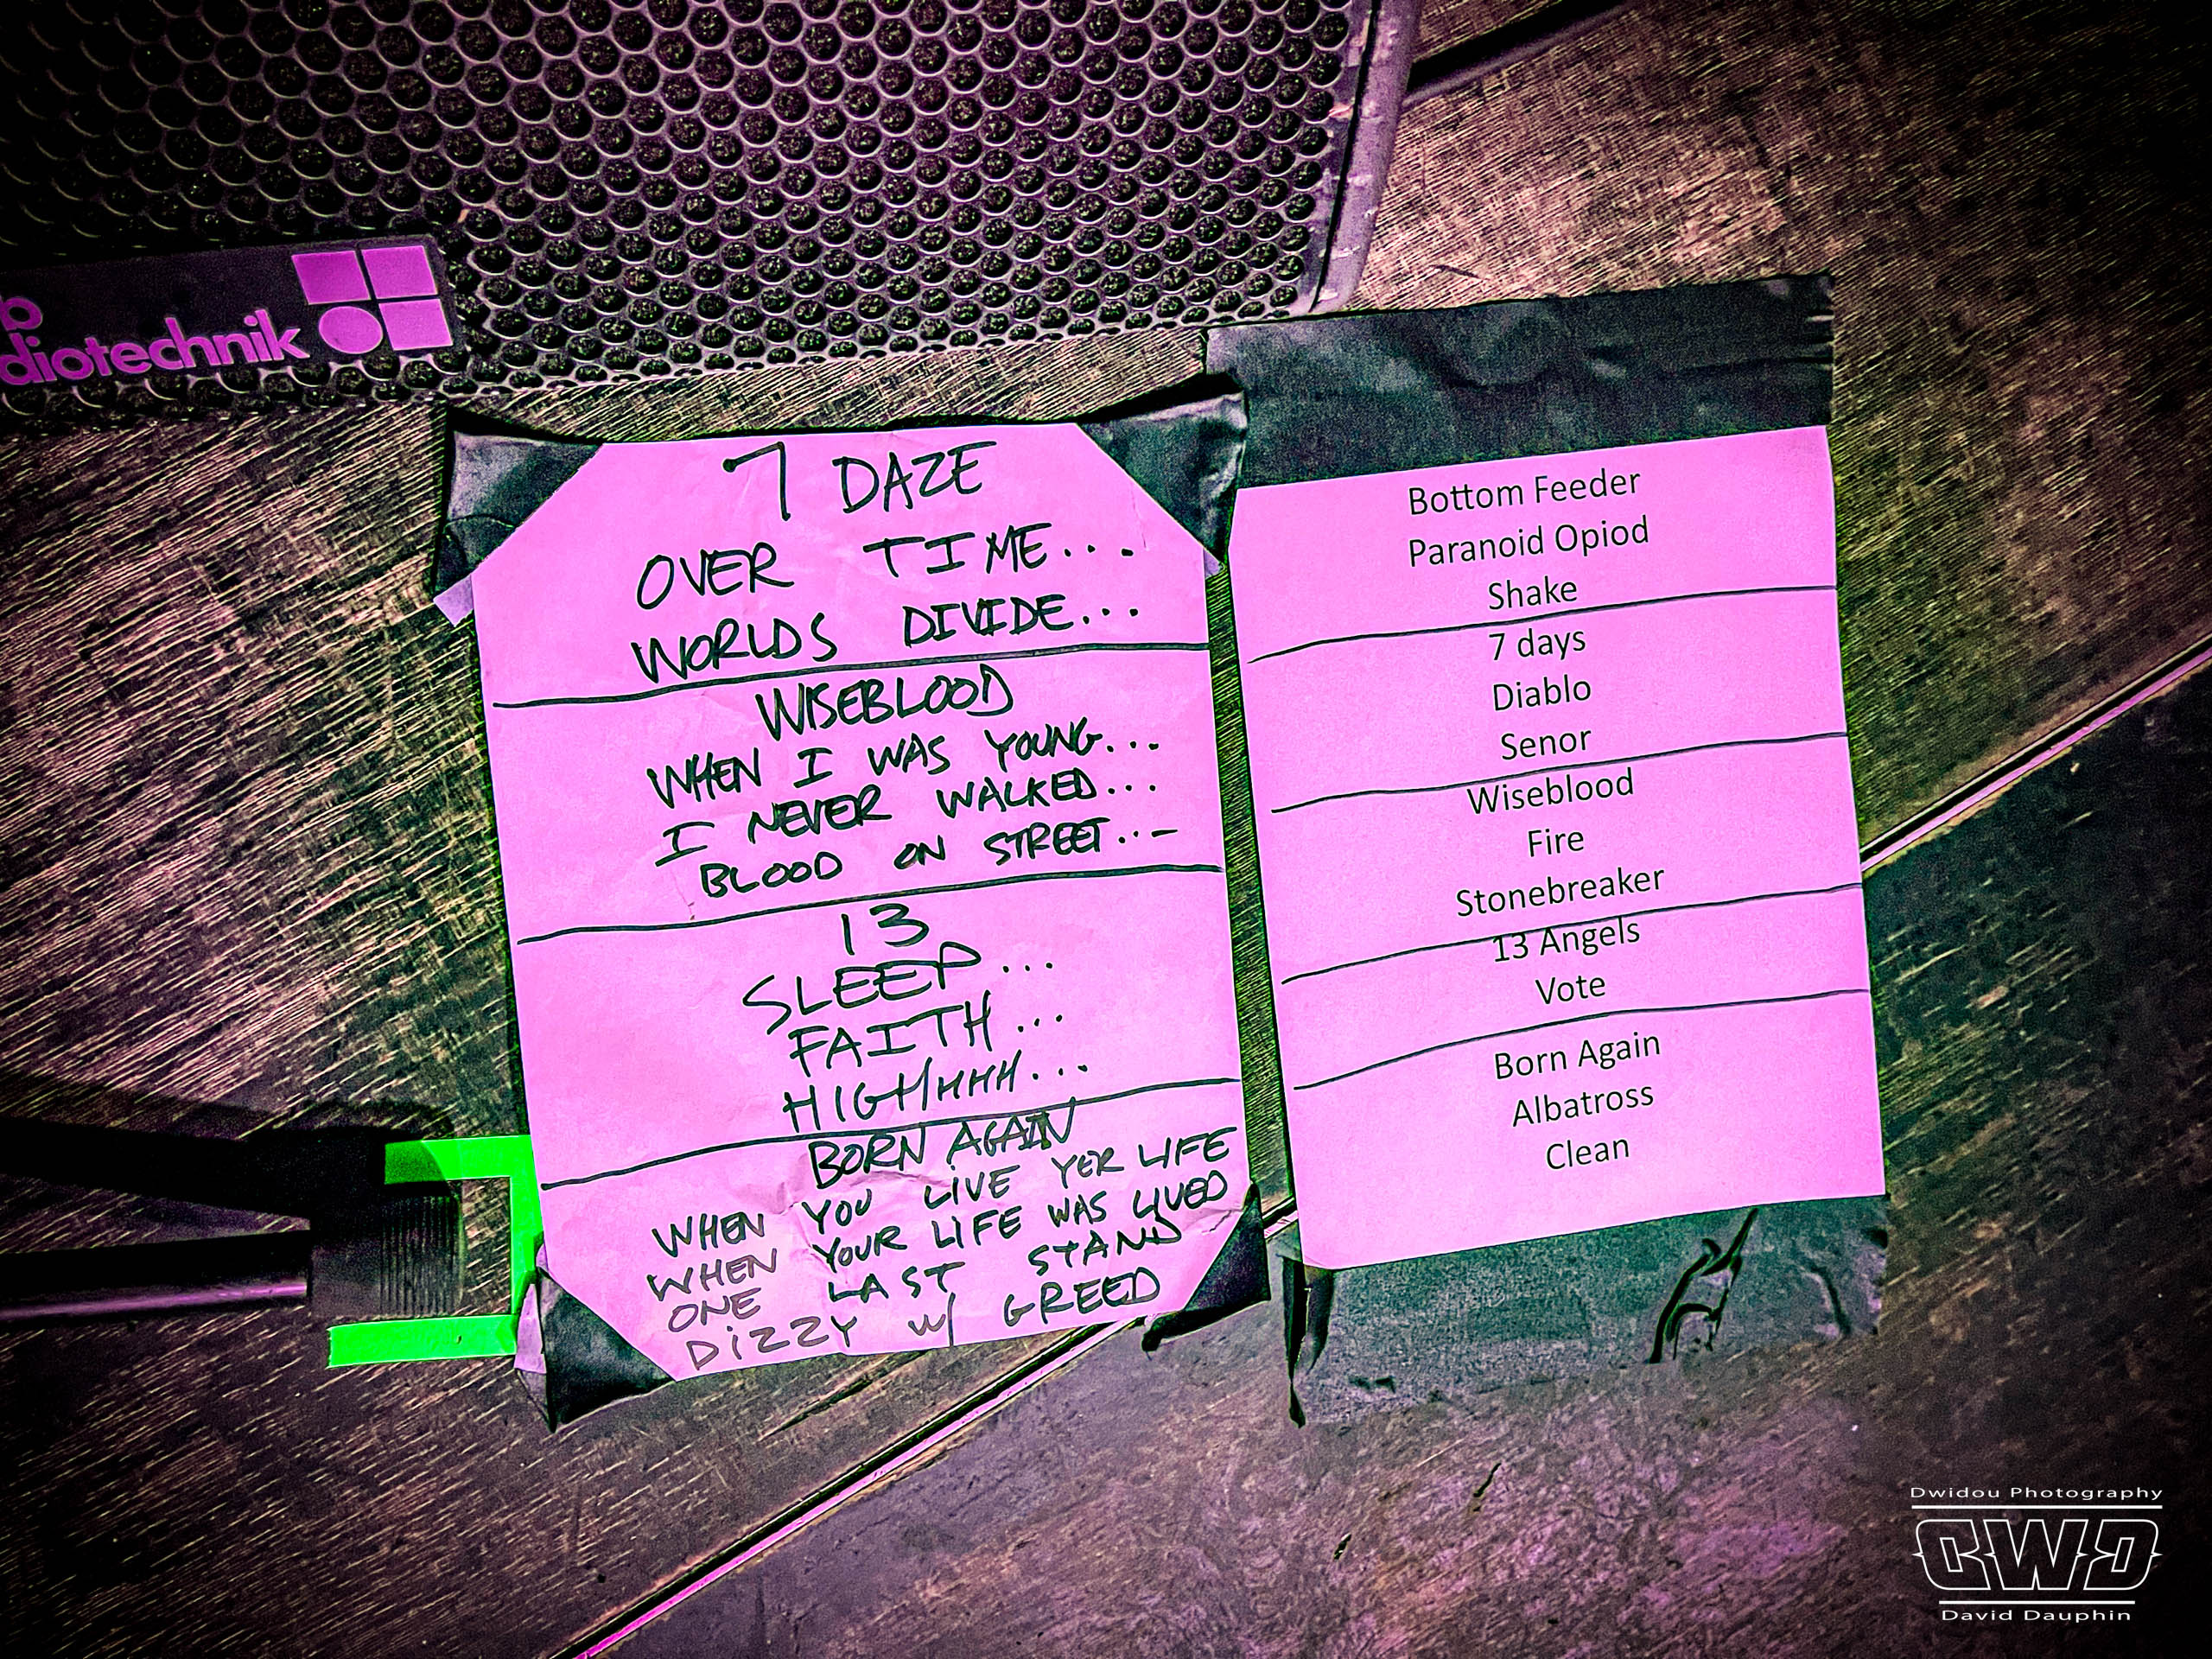 b
diotechnik
7 DAZE
OVER TIME...
WORLDS DIVIDE...
WISEBLOOD
WHEN I WAS YOUNG...
I NEVER WALKED...
BLOOD ON STREET...
13
SLEEP...
FAITH...
HIGHHHH...
BORN AGAIN
WHEN YOU LIVE YER LIFE
WHEN YOUR LIFE WAS LIVED
ONE LAST STAND
DIZZY W/ GREED
Bottom Feeder
Paranoid Opiod
Shake
7 days
Diablo
Senor
Wiseblood
Fire
Stonebreaker
13 Angels
Vote
Born Again
Albatross
Clean
Dwidou Photography
DWD
David Dauphin